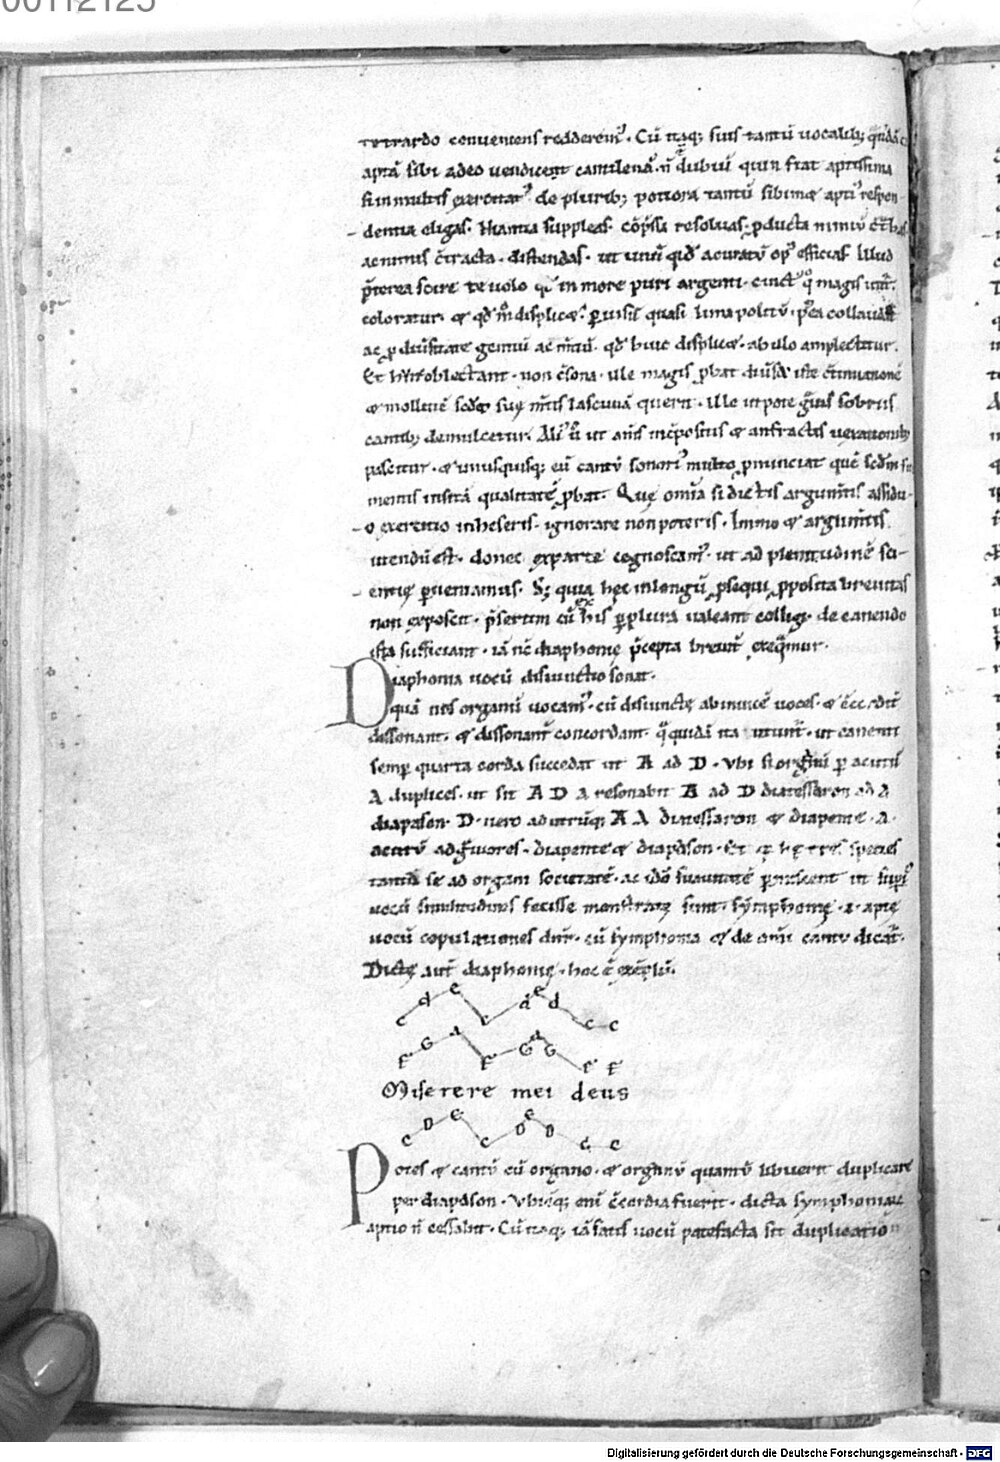 00112125
tetrardo conueniens redderem᷒. Cũ itaq; suis tantũ uocalib; quedã
aptã sibi adeo uendicent cantilenã. n̄ dubiũ quin fiat aptissima
si in multis exercitat᷒ de plurib; potiora tantũ sibimq; apti᷒ respon
dentia eligas. Hiantia suppleas. cōp̄ssa resoluas. ꝑducta nimiũ
ac nimis c̄tracta. distendas. ut unũ q̇d accuratũ op᷒ efficias Illud
p̄terea scire te uolo qđ in more puri argenti. magis
coloratur. ⁊ qđ m̊ displicet. quasi lima politũ. collaudat᷒
ac ꝓ diũsitate gentiũ ac mtiũ. qđ huic displicet. ab illo amplectitur.
Et hũc oblectant. non c̄sona. ille magis ꝓbat diũsa. iste c̄tinuationē
⁊ molliciē scdm suę mtis lasciuiã querit. ille utpote sobriis
cantib; demulcetur. Ali᷒ ũ ut am̄s in c̄positis ⁊ anfractis uexationib;
pascitur. ⁊ unusquisq; eũ cantũ sonori᷒ multo ꝓnunciat quē scdm suę
mentis insitã qualitatē ꝓbat. Quę om̄ia si dictis argumtis assidu
o exercitio inheseris. ignorare non poteris. Immo ⁊ argumtis
utendũ est. donec ex parte cognoscam᷒. ut ad plenitudinē sci-
entię ꝑueniamus. S; quia hęc in longũ ꝓsequi ꝓposita breuitas
non exposcit. p̄sertim cũ ex his ꝑplura ualeant colligi. de canendo
ista sufficiant. iã nc̄ diaphonię p̄cepta breuit̄ exeq̄mur.
Diaphonia uocũ disiunctio sonat.
quã nos organũ uocam᷒. cũ disiunctę abinuicē uoces. ⁊ c̄corditer
dissonant. ⁊ dissonant̄ concordant. q̄ quidã ita utunt̄. ut canenti
semꝑ quarta corda succedat ut A ad D. Vbi si organũ ꝑ acutũ
A duplices. ut sit A D A resonabit A ad D diatessaron ad A
diapason. D. uero ad utrũq; A A diatessaron ⁊ diapente. A.
acutũ ad g̃uiores. diapente ⁊ diapason. Et q̄ hę tres species
tanta se ad organi societatē. ac ido suauitatē ꝑmiscent ut suꝑi᷒
uocũ similitudines fecisse monstratę sunt. symphonię. i. aptę
uocũ copulationes dn̄r. cũ symphonia ⁊ de om̄i cantu dicat̄.
Dictę aut̄ diaphonię. hoc ē exēplũ.
c d e c d e d c c
F G A F G A G F F
Miserere mei deus
C D E C D E D C C
Potes ⁊ cantũ cũ organo. ⁊ organũ quantũ libuerit duplicare
per diapason. Vbicũq; eni c̄cordia fuerit. dicta symphoniaꝝ
aptio n̄ cessabit. Cũ itaq; iã satis uocũ patefacta sit duplicatio
Digitalisierung gefördert durch die Deutsche Forschungsgemeinschaft - DFG